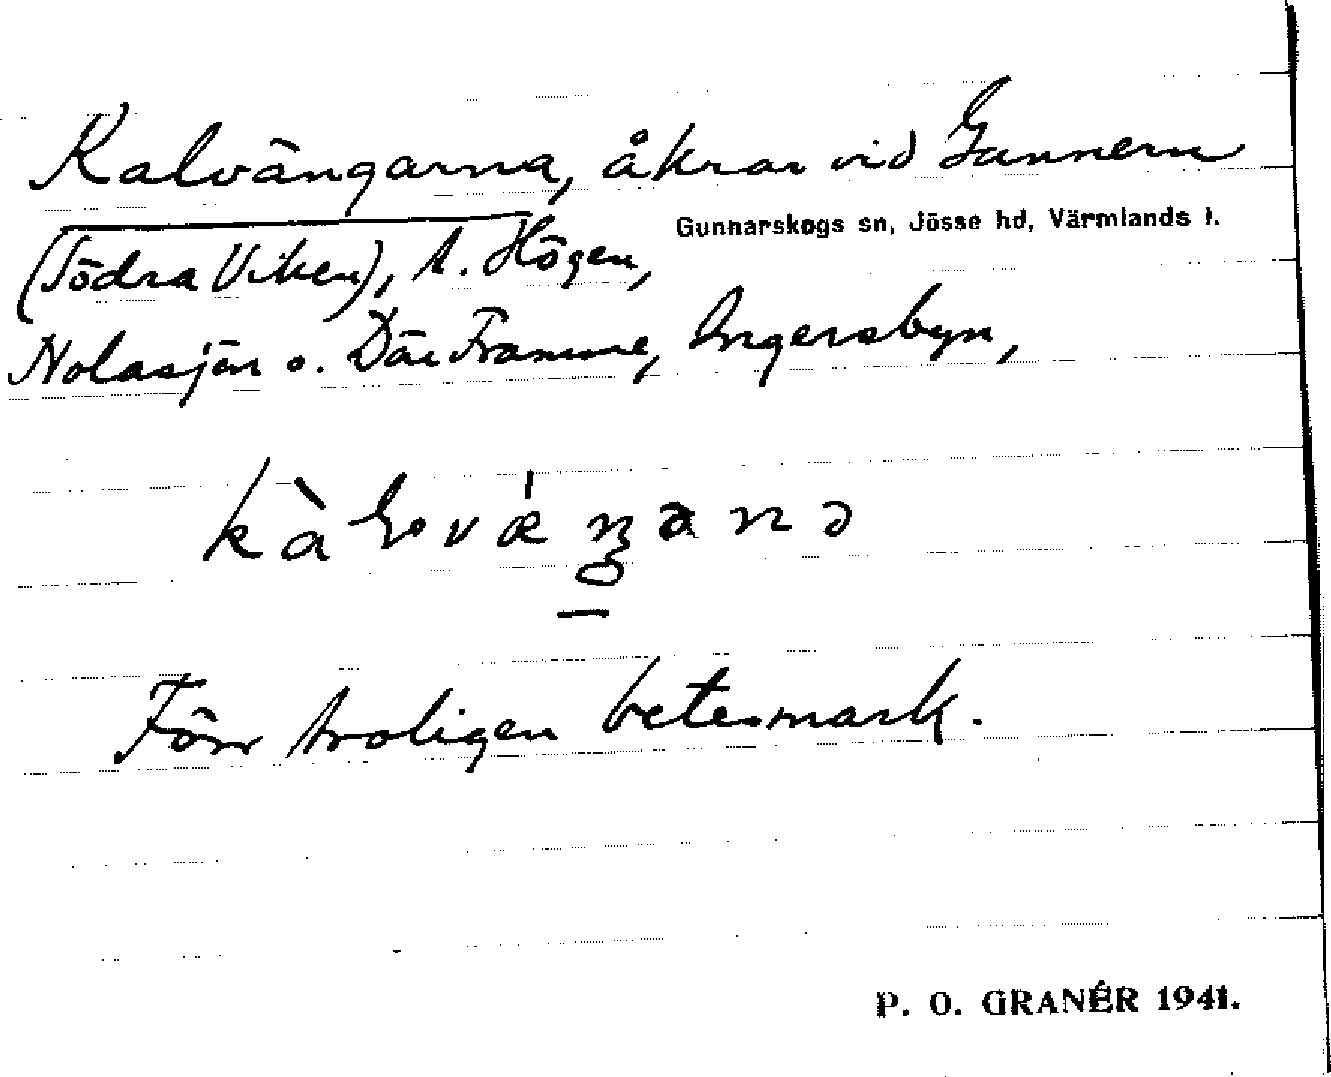 Kalvängarna, åkrar vid Gunnern
Gunnarskogs sn, Jösse hd, Värmlands l.
(Södra Viken), t. Högen,
Nolasjön o. Där Framme, Ingersbyn,
Förr troligen betesmark.
P. O. GRANÉR 1941.